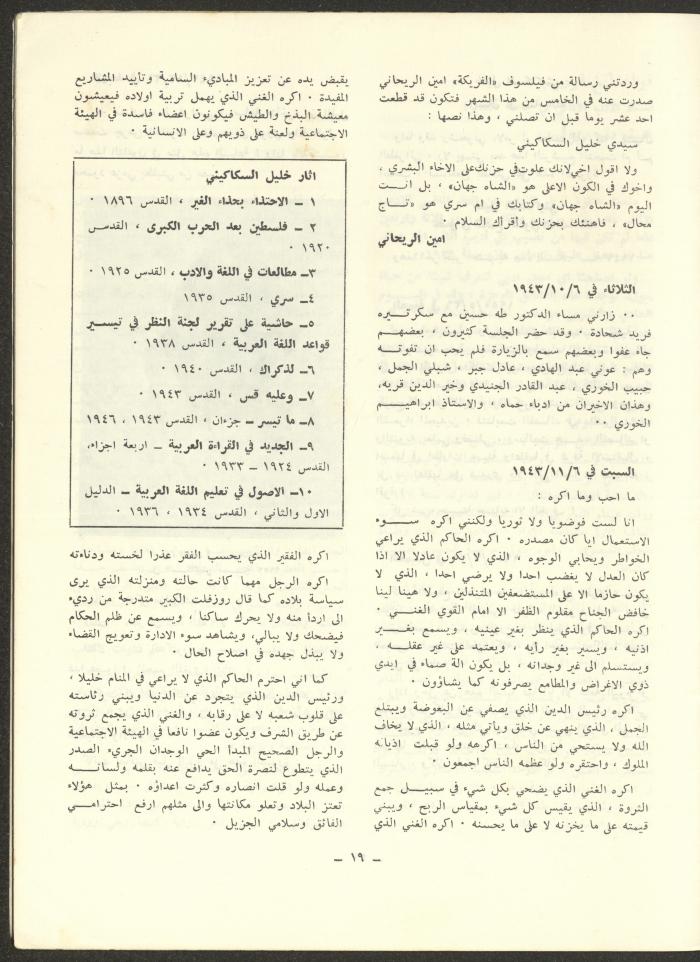 وردتني رسالة من فيلسوف «الفريكة» امين الريحاني
صدرت عنه في الخامس من هذا الشهر فتكون قد قطعت
احد عشر يوما قبل ان تصلني ، وهذا نصها :
سيدي خليل السكاكيني
ولا اقول اخي لانك علوت في حزنك على الاخاء البشري ،
واخوك في الكون الاعلى هو «الشاه جهان» ، بل انـــت
اليوم «الشاه جهان» وكتابك في ام سري هو «تـــاج
محال» ، فاهنئك بحزنك وأقرأك السلام ٠
امين الريحاني
الثلاثاء في ١٩٤٣/١٠/٦
٠٠ زارني مساء الدكتور طه حسين مع سكرتـــيره
فريد شحادة ٠ وقد حضر الجلسة كثيرون ، بعضهـــم
جاء عفوا وبعضهم سمع بالزيارة فلم يحب ان تفوتـــه
وهم : عوني عبد الهادي ، عادل جبر ، شبلي الجمل ،
حبيب الخوري ، عبد القادر الجنيدي وخير الدين قربه،
وهذان الاخيران من ادباء حماه ، والاستاذ ابراهيـــم
الخوري ٠٠
السبت في ١٩٤٣/١١/٦
ما احب وما اكره :
انا لست فوضويا ولا ثوريا ولكنني اكره ســـوء
الاستعمال ايا كان مصدره ٠ اكره الحاكم الذي يراعي
الخواطر ويحابي الوجوه ، الذي لا يكون عادلا الا اذا
كان العدل لا يغضب احدا ولا يرضي احدا ، الذي لا
يكون حازما الا على المستضعفين المتنذلين ، ولا هينا لينا
خافض الجناح مقلوم الظفر الا امام القوي الغنـــي ٠
اكره الحاكم الذي ينظر بغير عينيه ، ويسمع بغـــير
اذنيه ، ويسير بغير رأيه ، ويعتمد على غير عقلـــه ،
ويستسلم الى غير وجدانه ، بل يكون الة صماء في ايدي
ذوي الاغراض والمطامع يصرفونه كما يشاؤون ٠
اكره رئيس الدين الذي يصفي عن البعوضة ويبتلع
الجمل ، الذي ينهي عن خلق ويأتي مثله ، الذي لا يخاف
الله ولا يستحي من الناس ، اكرهه ولو قبلت اذياله
الملوك ، واحتقره ولو عظمه الناس اجمعون ٠
اكره الغني الذي يضحي بكل شيء في سبيـــل جمع
الثروة ، الذي يقيس كل شيء بمقياس الربح ، ويبني
قيمته على ما يخزنه لا على ما يحسنه ٠ اكره الغني الذي
يقبض يده عن تعزيز المباديء السامية وتأييد المشاريع
المفيدة ٠ اكره الغني الذي يهمل تربية اولاده فيعيشون
معيشة البذخ والطيش فيكونون اعضاء فاسدة في الهيئة
الاجتماعية ولعنة على ذويهم وعلى الانسانية ٠
اثار خليل السكاكيني
١ – الاحتذاء بحذاء الغير ، القدس ١٨٩٦ ٠
٢ – فلسطين بعد الحرب الكبرى ، القدس
١٩٢٠ ٠
٣– مطالعات في اللغة والادب ، القدس ١٩٢٥ ٠
٤– سري ، القدس ١٩٣٥
٥– حاشية على تقرير لجنة النظر في تيســـير
قواعد اللغة العربية ، القدس ١٩٣٨ ٠
٦– لذكراك ، القدس ١٩٤٠ ٠
٧– وعليه قس ، القدس ١٩٤٣ ٠
٨– ما تيسر – جزءان ، القدس ١٩٤٣ ، ١٩٤٦
٩– الجديد في القراءة العربية – اربعة اجزاء،
القدس ١٩٢٤ – ١٩٣٣ ٠
١٠– الاصول في تعليم اللغة العربية – الدليل
الاول والثاني ، القدس ١٩٣٤ ، ١٩٣٦ ٠
اكره الفقير الذي يحسب الفقر عذرا لخسته ودناءته
اكره الرجل مهما كانت حالته ومنزلته الذي يرى
سياسة بلاده كما قال روزفلت الكبير متدرجة من رديء
الى اردأ منه ولا يحرك ساكنا ، ويسمع عن ظلم الحكام
فيضحك ولا يبالي، ويشاهد سوء الادارة وتعويج القضاء
ولا يبذل جهده في اصلاح الحال ٠
كما اني احترم الحاكم الذي لا يراعي في المنام خليلا ،
ورئيس الدين الذي يتجرد عن الدنيا ويبني رئاسته
على قلوب شعبه لا على رقابه ، والغني الذي يجمع ثروته
عن طريق الشرف ويكون عضوا نافعا في الهيئة الاجتماعية
والرجل الصحيح المبدأ الحي الوجدان الجريء الصدر
الذي يتطوع لنصرة الحق يدافع عنه بقلمه ولســانـــه
وعمله ولو قلت انصاره وكثرت اعداؤه ٠ بمثل هؤلاء
تعتز البلاد وتعلو مكانتها والى مثلهم ارفع احترامـــي
الفائق وسلامي الجزيل ٠
– ١٩ –